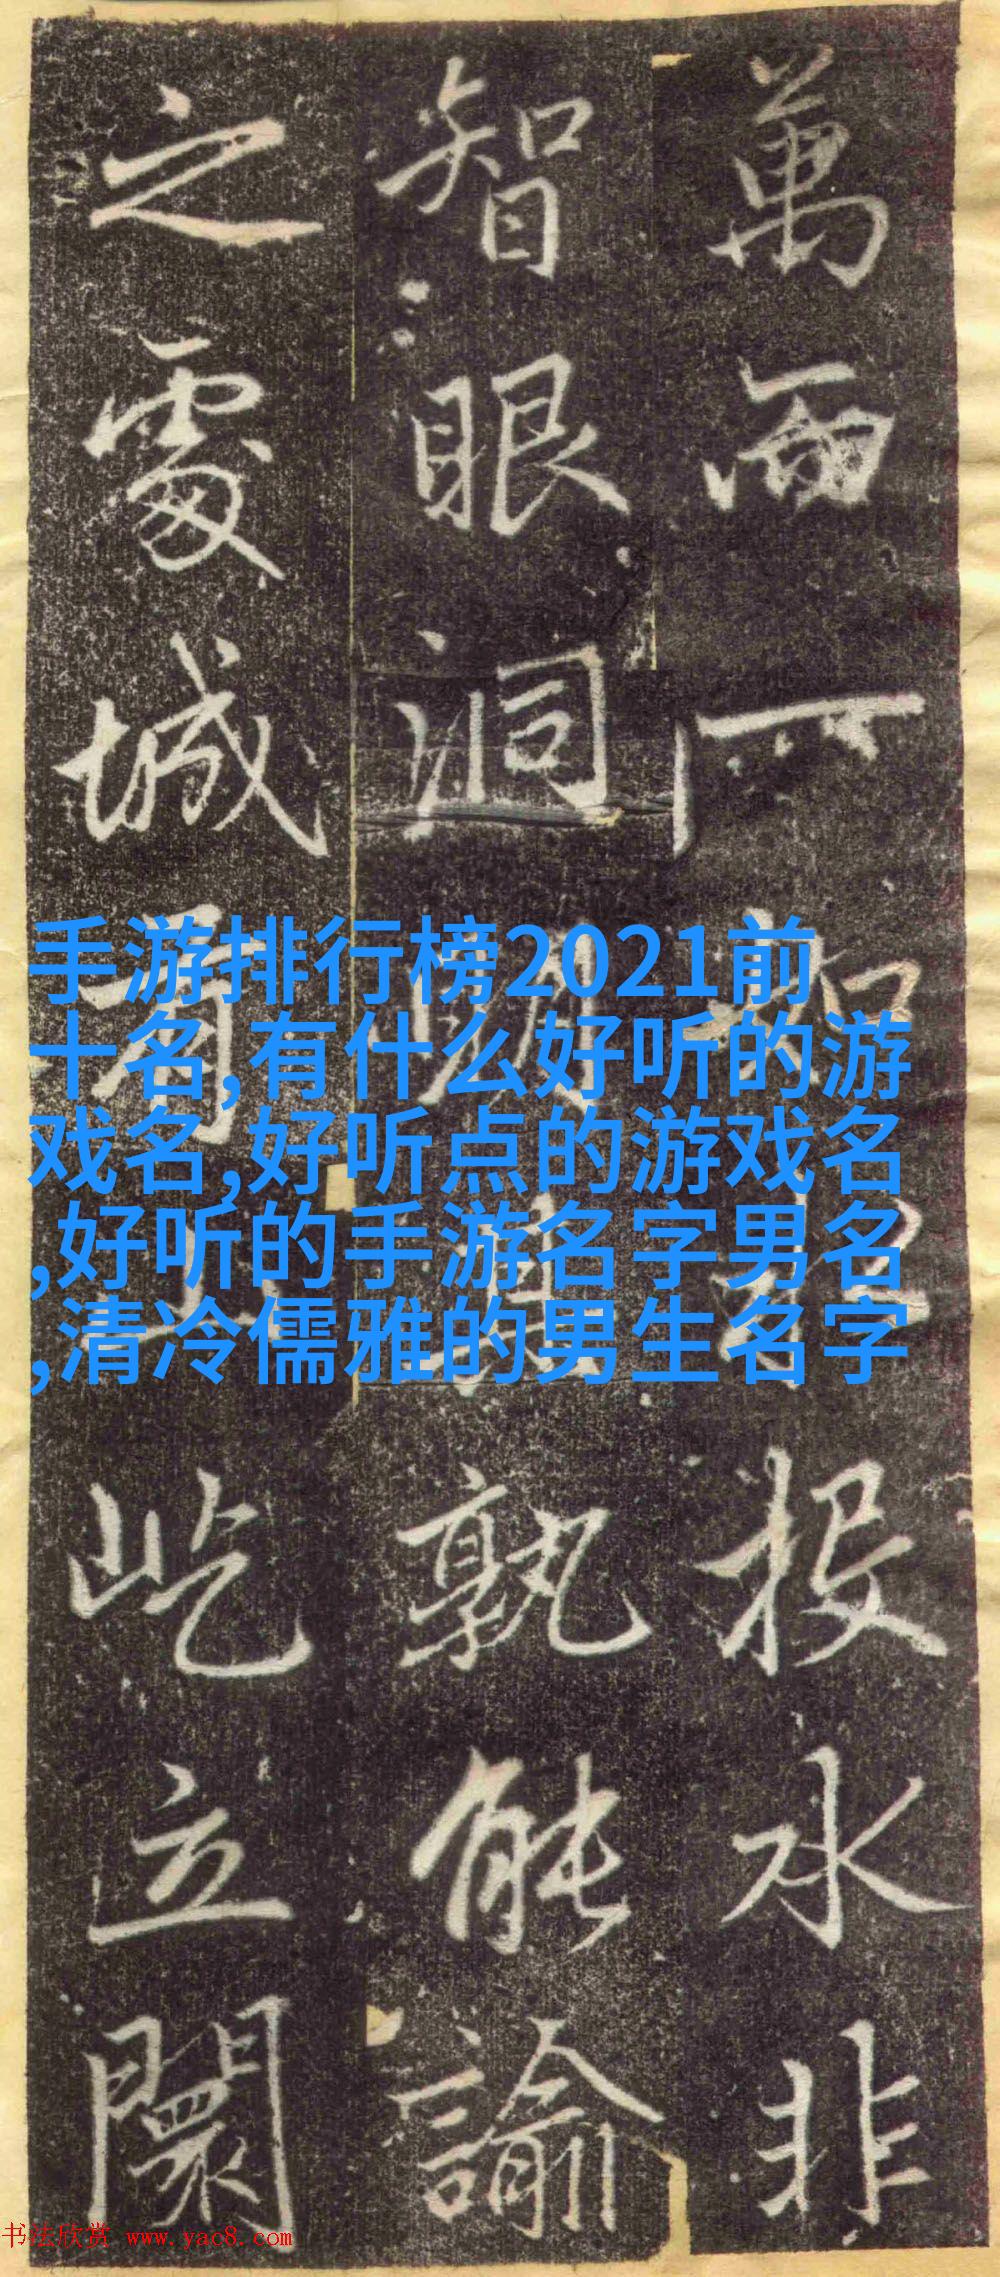 萬而一投水非
智眼洞明孰能諭
之處城屹立闤
手游排行榜2021前
十名,有什么好听的游
戏名,好听点的游戏名
,好听的手游名字男名
,清冷儒雅的男生名字
书法欣赏 www.yac8.com